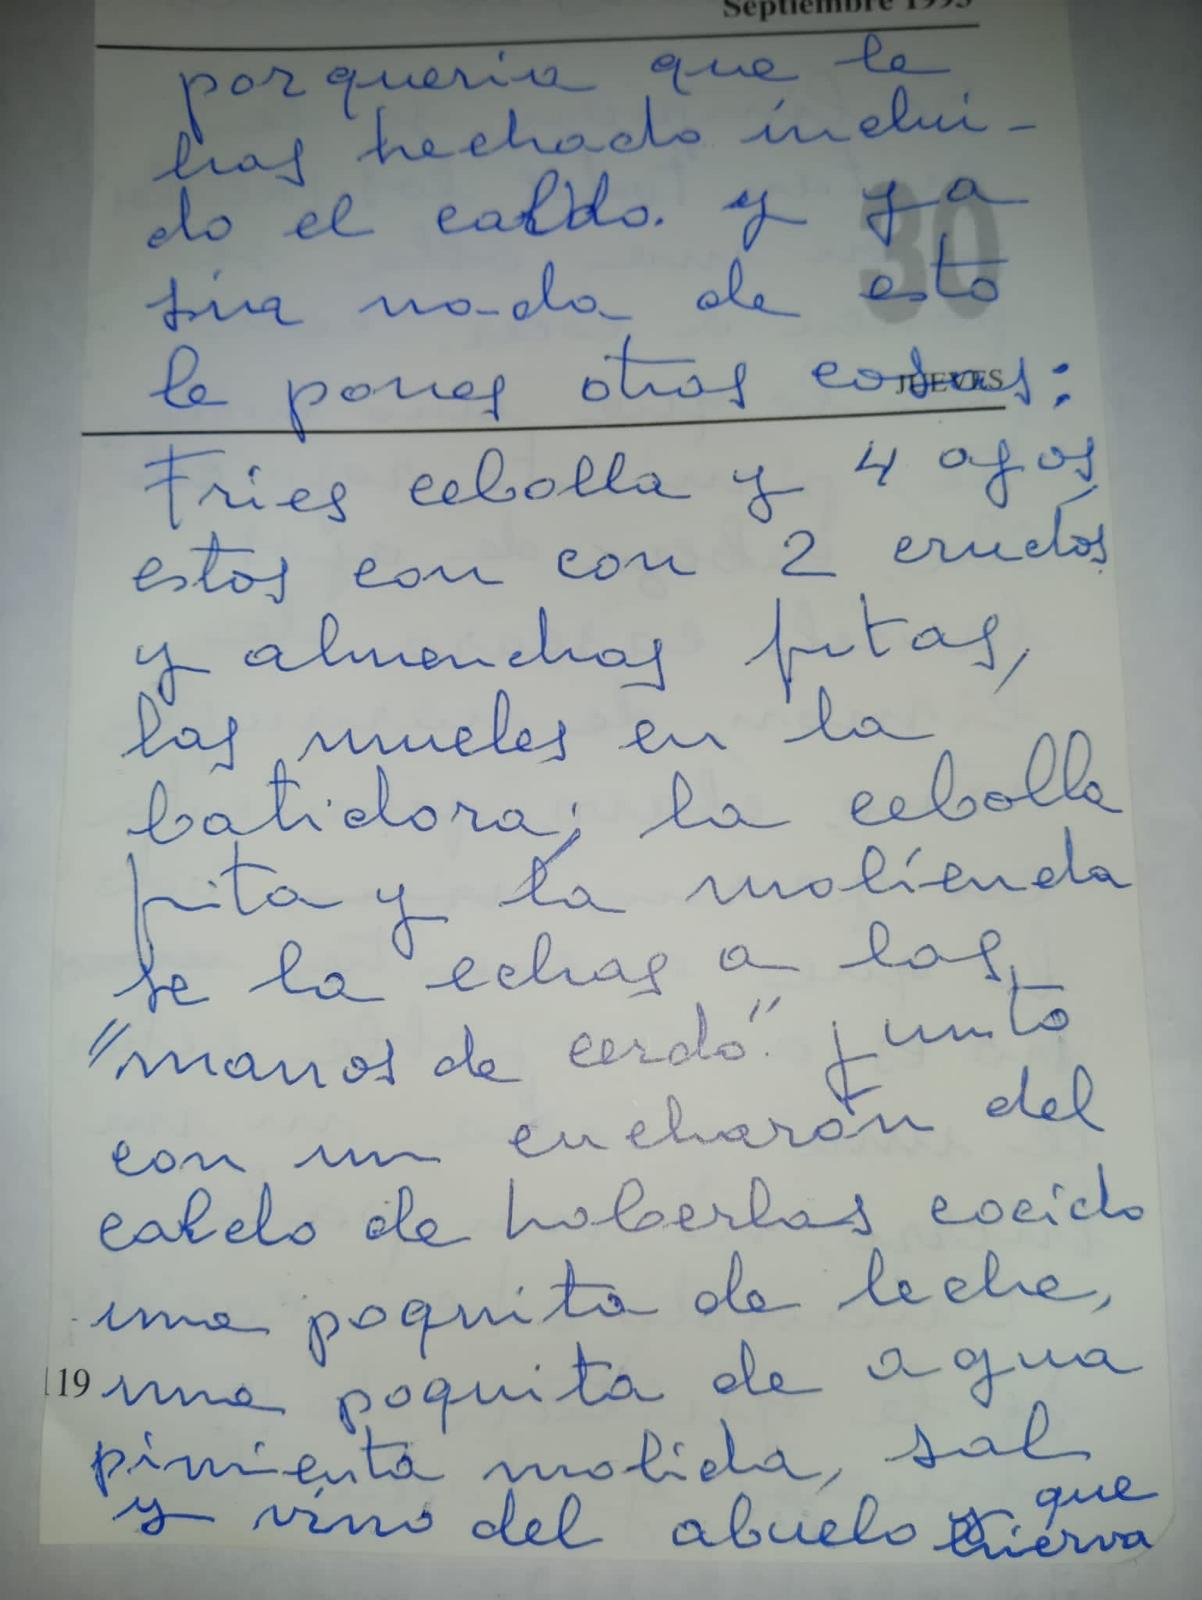 Septiembre 1995
porqueria que le
has hechado inclui-
do el caldo. y ya
30
sin nada de esto
le pones otras cosas:
JUEVES
Fries cebolla y 4 agos,
estos con con 2 crudos
y almenchas fritas,
las mueles en la
batidora; la cebolla
frita y la molienda
se la echas a las
"manos de cerdo" junto
con un cucharon del
caldo de haberlas cocido
una poquita de leche,
119 una poquita de agua
pimienta molida, sal
y vino del abuelo y que
hierva